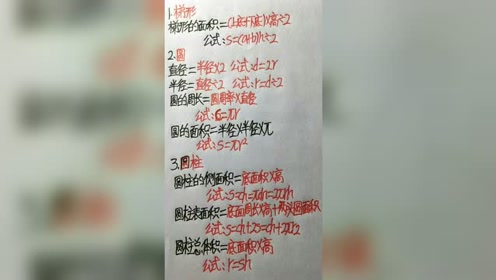 1.梯形
梯形的面积=(上底+下底)×高÷2
公式:S=(a+b)h÷2
2.圆
直径=半径×2 公式:d=2r
半径=直径÷2 公式:r=d÷2
圆的周长=圆周率×直径
公式:C=πr
圆的面积=半径×半径×π
公式:S=πr²
3.圆柱
圆柱的侧面积=底面积×高
公式:S=ch=πdh=2πrh
圆柱表面积=底面周长×高+两头圆面积
公式:S=ch+2s=ch+2πr2
圆柱总体积=底面积×高
公式:r=sh